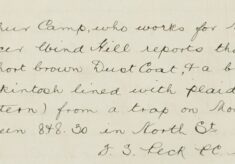 hur Camp, who works for M
cer Wind Hill reports tha
hort brown Dust Coat, & a b
kintosh lined with plaid
tern) from a trap on Mo
een 8 & 8.30 in North St
J. S. Peck P.C.